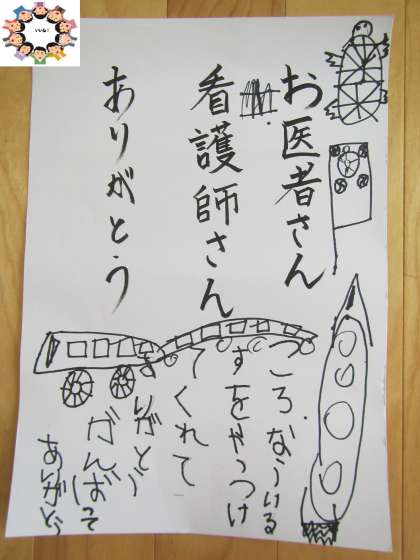 いいね!
お医者さん
看護師さん
ありがとう
ころなういる
すをやっつけ
てくれて
ありがとう
がんばって
ありがとう